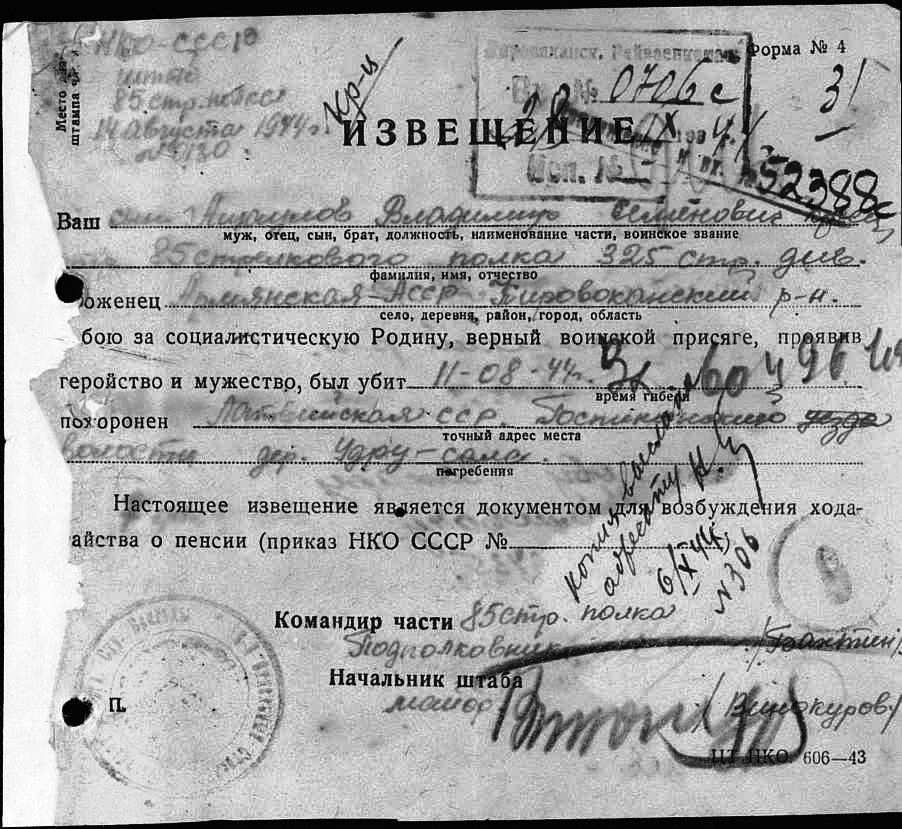 НКО-СССР
штаб
85 стр. полка
14 Августа 1944 г.
№ 1130
Место для
штампа ч.
Кр-ц
Кироваканск. Райвоенкомат
Вх. № 0706 с
IX 1944
Исп. №
Форма № 4
31
52388с
ИЗВЕЩЕНИЕ
Ваш сын Владимир Семёнович
муж, отец, сын, брат, должность, наименование части, воинское звание
85 стрелкового полка 325 стр. див.
фамилия, имя, отчество
оженец Армянская-АССР Кировоканский р-н.
село, деревня, район, город, область
бою за социалистическую Родину, верный воинской присяге, проявив
геройство и мужество, был убит 11-08-44г.
время гибели
похоронен Латвийская ССР. уезда
точный адрес места
волости дер. Удру-сала.
погребения
Настоящее извещение является документом для возбуждения хода-
айства о пенсии (приказ НКО СССР №
копия выслана
адресату
6/X 44
№ 306
Командир части 85 стр. полка
Подполковник
Начальник штаба
майор /Винокуров/
П.
ЦТ НКО. 606—43